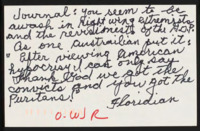 Journal: You seem to be
awash in right wing extremists
and the revisionists of the G.O.P.
As one Australian put it:
"After viewing American
hypocrisy I can only say
thank God we got the
convicts and you got the
Puritans!"
Floridian
O.W.R